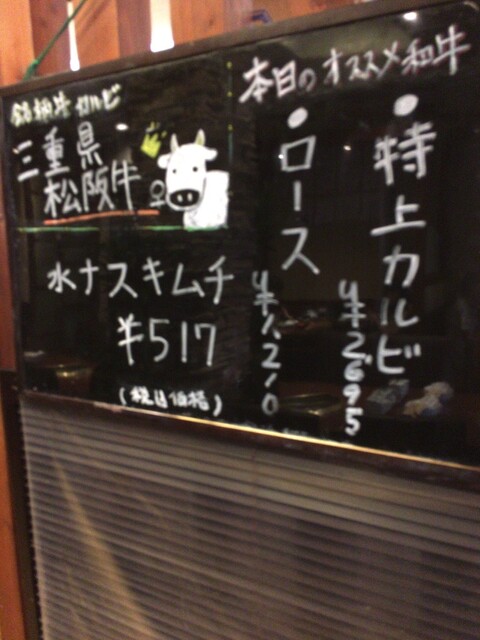 本日のオススメ和牛
●特上カルビ
¥2,695
●ロース
¥1,210
銘柄牛カルビ
三重県
松阪牛♀
水ナスキムチ
¥517
(税込価格)